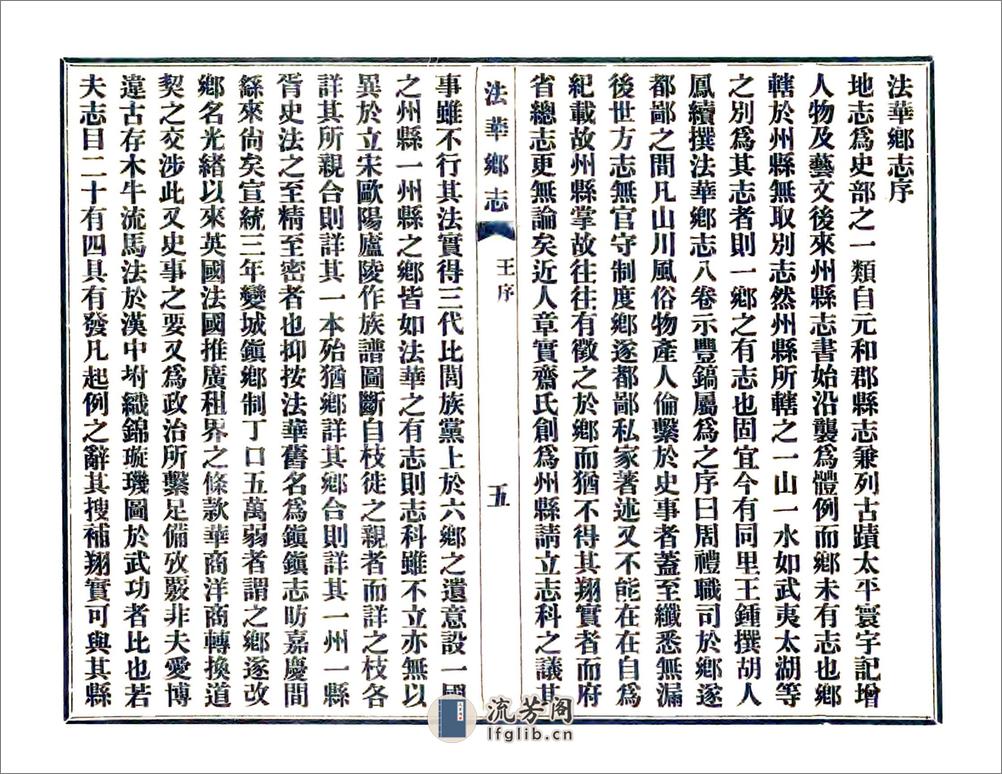 法華鄉志序
地志爲史部之一類自元和郡縣志兼列古蹟太平寰宇記增
人物及藝文後來州縣志書始沿襲爲體例而鄉未有志也鄉
轄於州縣無取別志然州縣所轄之一山一水如武夷太湖等
之別爲其志者則一鄉之有志也固宜今有同里王鍾撰胡人
鳳續撰法華鄉志八卷示豐鎬屬爲之序曰周禮職司於鄉遂
都鄙之間凡山川風俗物產人倫繫於史事者蓋至纖悉無漏
後世方志無官守制度鄉遂都鄙私家著述又不能在在自爲
紀載故州縣掌故往往有徵之於鄉而猶不得其翔實者而府
省總志更無論矣近人章實齋氏創爲州縣請立志科之議其
法華鄉志
王序
五
事雖不行其法實得三代比閭族黨上於六鄉之遺意設一國
之州縣一州縣之鄉皆如法華之有志則志科雖不立亦無以
異於立宋歐陽廬陵作族譜圖斷自枝徙之親者而詳之枝各
詳其所親合則詳其一本殆猶鄉詳其鄉合則詳其一州一縣
胥史法之至精至密者也抑按法華舊名爲鎭鎭志昉嘉慶間
繇來尙矣宣統三年變城鎭鄉制丁口五萬弱者謂之鄉遂改
鄉名光緒以來英國法國推廣租界之條款華商洋商轉換道
契之交涉此又史事之要又爲政治所繫足備攷覈非夫愛博
違古存木牛流馬法於漢中坿織錦璇璣圖於武功者比也若
夫志目二十有四具有發凡起例之辭其搜補翔實可與其縣
流芳阁
lfglib.cn